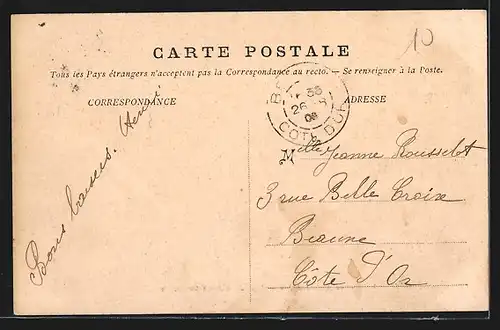 10
CARTE POSTALE
Tous les Pays étrangers n'acceptent pas la Correspondance au recto. — Se renseigner à la Poste.
CORRESPONDANCE
ADRESSE
26
CÔTE D'OR
Bons baisers. Henri
Melle Jeanne Rousselot
3 rue Belle Croix
Beaune
Côte d'Or